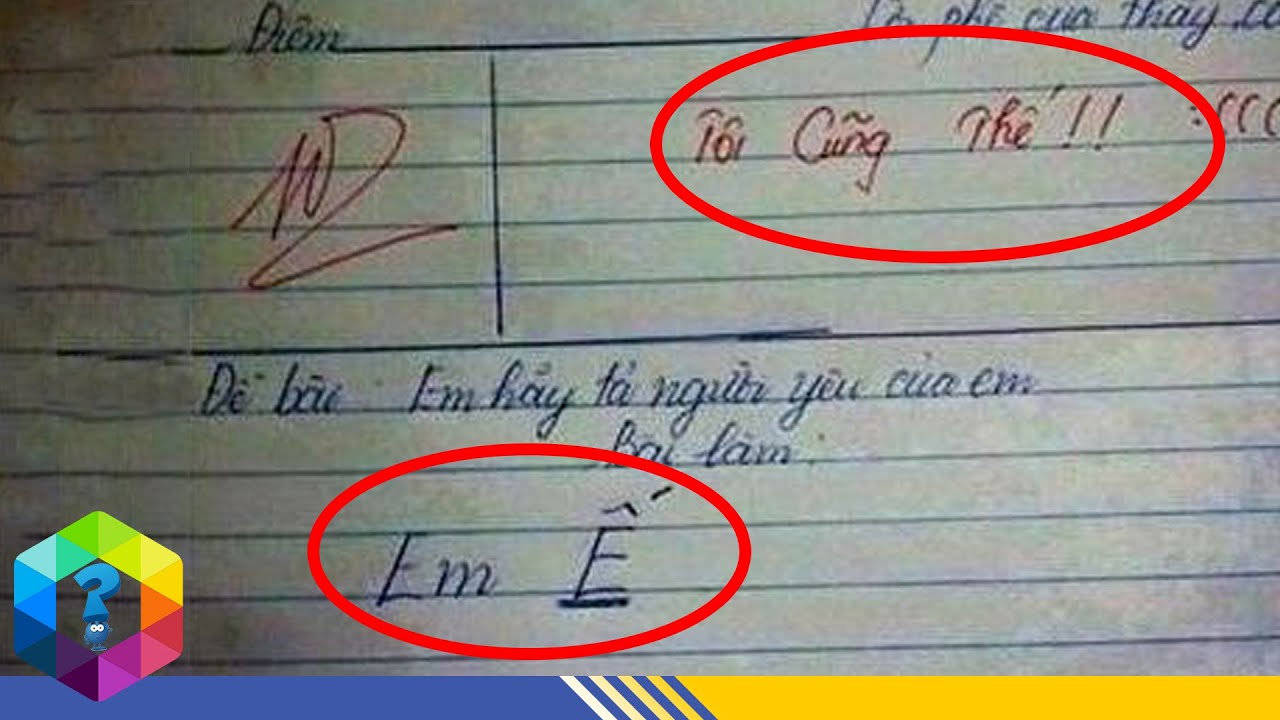 Điểm
Lời phê của thầy cô
10
Tôi Cũng Thế !! :(((
Đề bài Em hãy tả người yêu của em
Bài làm:
Em Ế
?